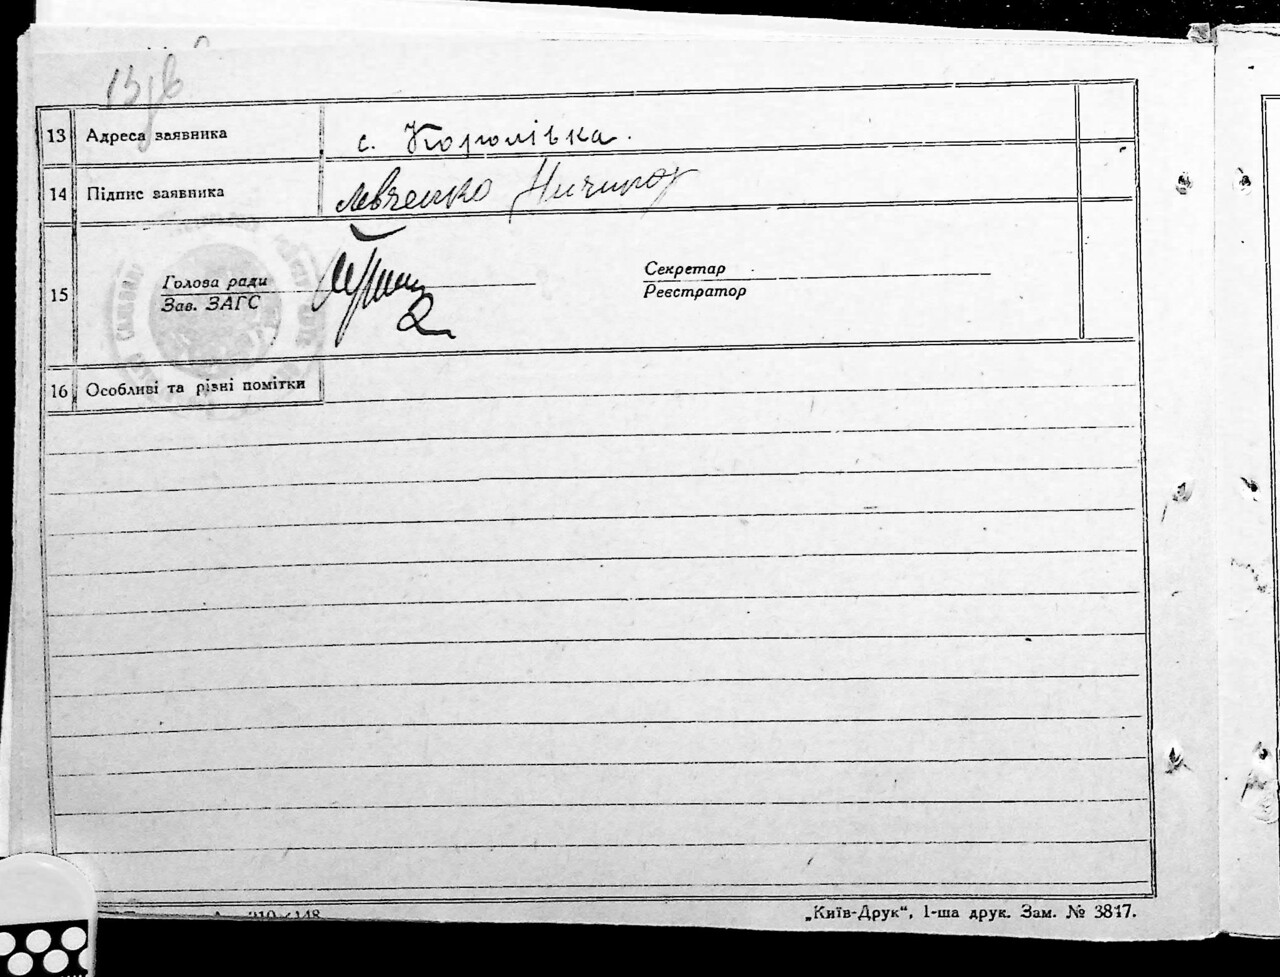 13 Адреса заявника с. Королівка.
14 Підпис заявника Левченко Ничипор
15 Голова ради
Зав. ЗАГС
Секретар
Реєстратор
16 Особливі та різні помітки
„Київ-Друк“, 1-ша друк. Зам. № 3817.